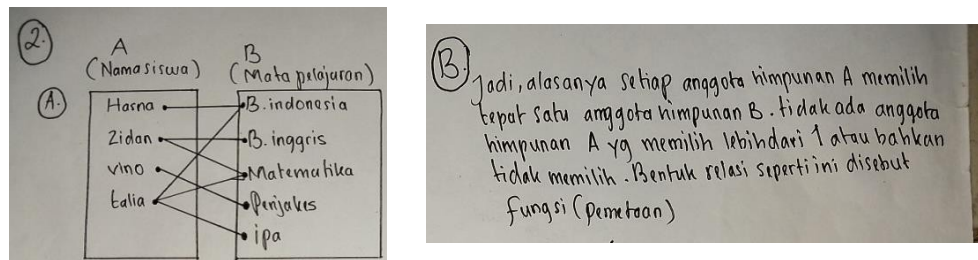 2.
A
B
(Nama siswa)
(Mata pelajaran)
A.
Hasna
B. indonesia
Zidan
B. inggris
vino
Matematika
talia
Penjakes
ipa
B.
Jadi, alasanya setiap anggota himpunan A memilih
tepat satu anggota himpunan B. tidak ada anggota
himpunan A yg memilih lebih dari 1 atau bahkan
tidak memilih. Bentuk relasi seperti ini disebut
fungsi (pemetaan)